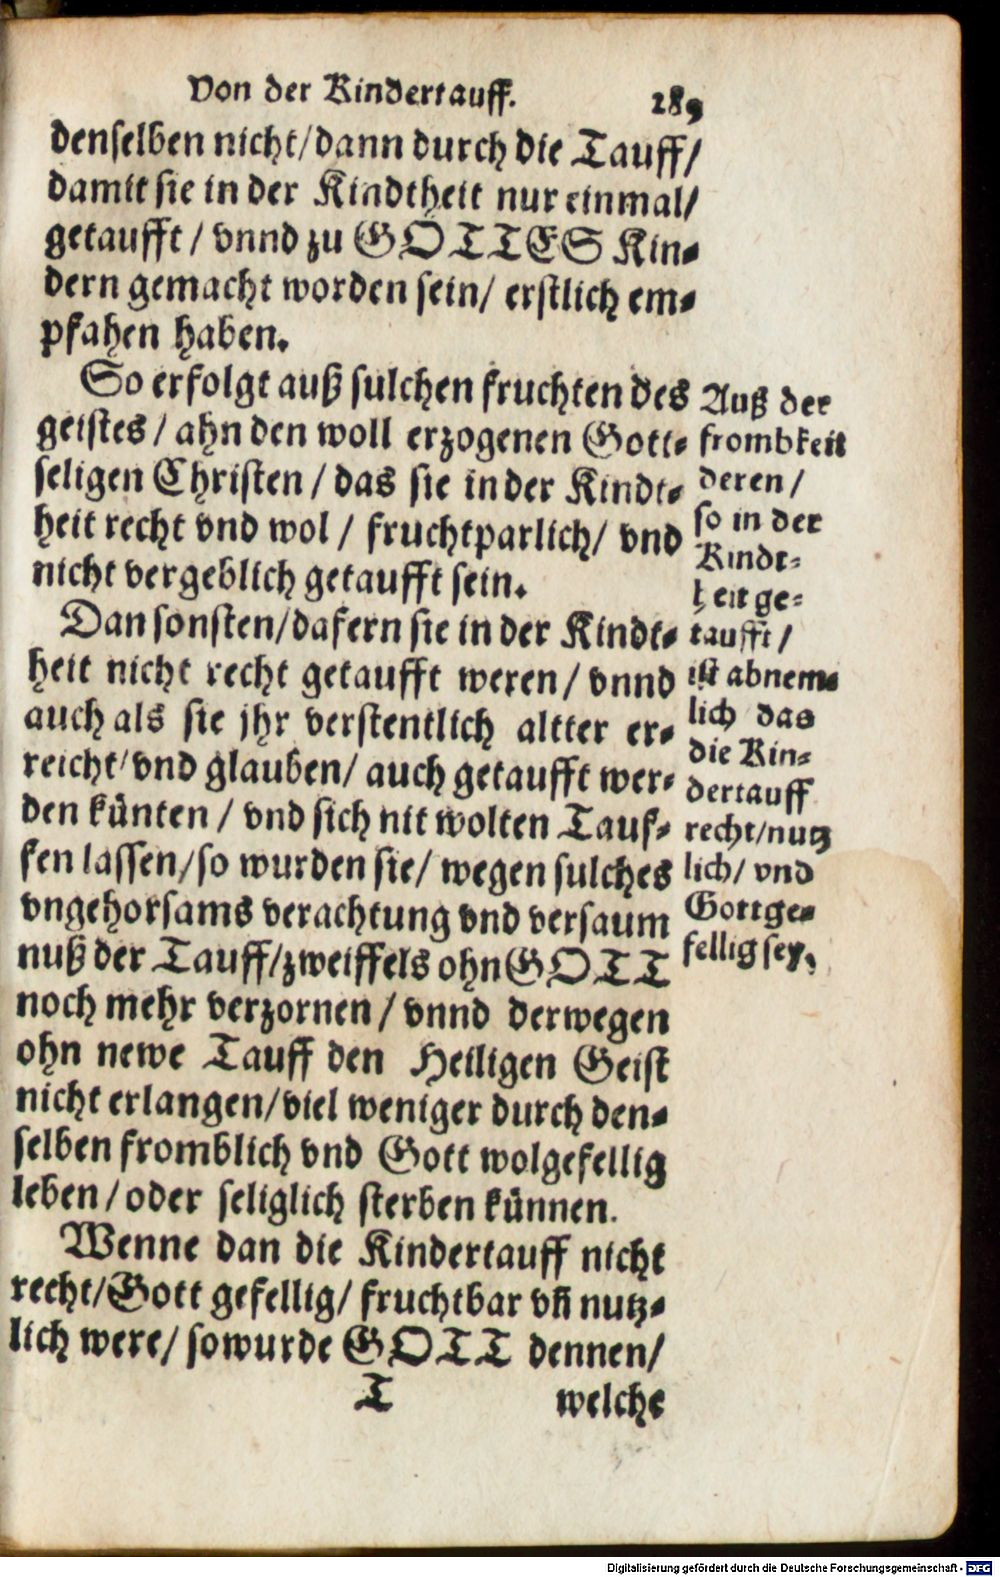 Von der Kindertauff. 289
denselben nicht/dann durch die Tauff/
damit sie in der Kindtheit nur einmal/
getaufft / vnnd zu GOTTES Kin-
dern gemacht worden sein/ erstlich em-
pfahen haben.
So erfolgt auß sulchen fruchten des
geistes / ahn den woll erzogenen Gott-
seligen Christen / das sie in der Kindt-
heit recht vnd wol / fruchtparlich/ vnd
nicht vergeblich getaufft sein.
Dan sonsten/dafern sie in der Kindt-
heit nicht recht getaufft weren / vnnd
auch als sie jhr verstentlich altter er-
reicht/vnd glauben/ auch getaufft wer-
den künten / vnd sich nit wolten Tauf-
fen lassen/so wurden sie/ wegen sulches
vngehorsams verachtung vnd versaum
nuß der Tauff/zweiffels ohn GOTT
noch mehr verzornen / vnnd derwegen
ohn newe Tauff den Heiligen Geist
nicht erlangen/viel weniger durch den-
selben fromblich vnd Gott wolgefellig
leben / oder seliglich sterben künnen.
Wenne dan die Kindertauff nicht
recht/Gott gefellig/ fruchtbar vñ nutz-
lich were/ sowurde GOTT dennen/
T welche
Auß der
frombkeit
deren /
so in der
Kindt-
heit ge-
taufft /
ist abnem-
lich das
die Kin-
dertauff
recht/nutz
lich/ vnd
Gottge-
fellig sey.
Digitalisierung gefördert durch die Deutsche Forschungsgemeinschaft - DFG